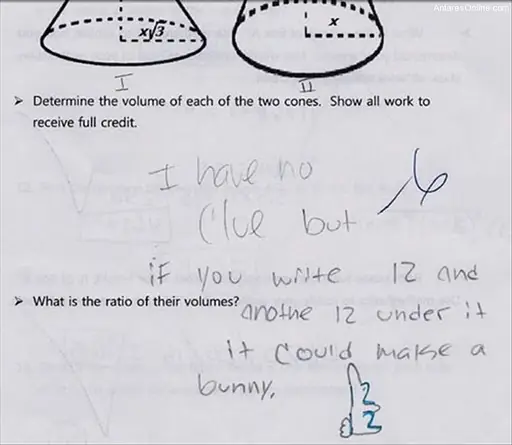 AntaresOnline.com
x√3
x
I
II
➤ Determine the volume of each of the two cones. Show all work to
receive full credit.
I have no
Clue but
if you write 12 and
➤ What is the ratio of their volumes?
anothe 12 under it
it could make a
bunny.
12
12